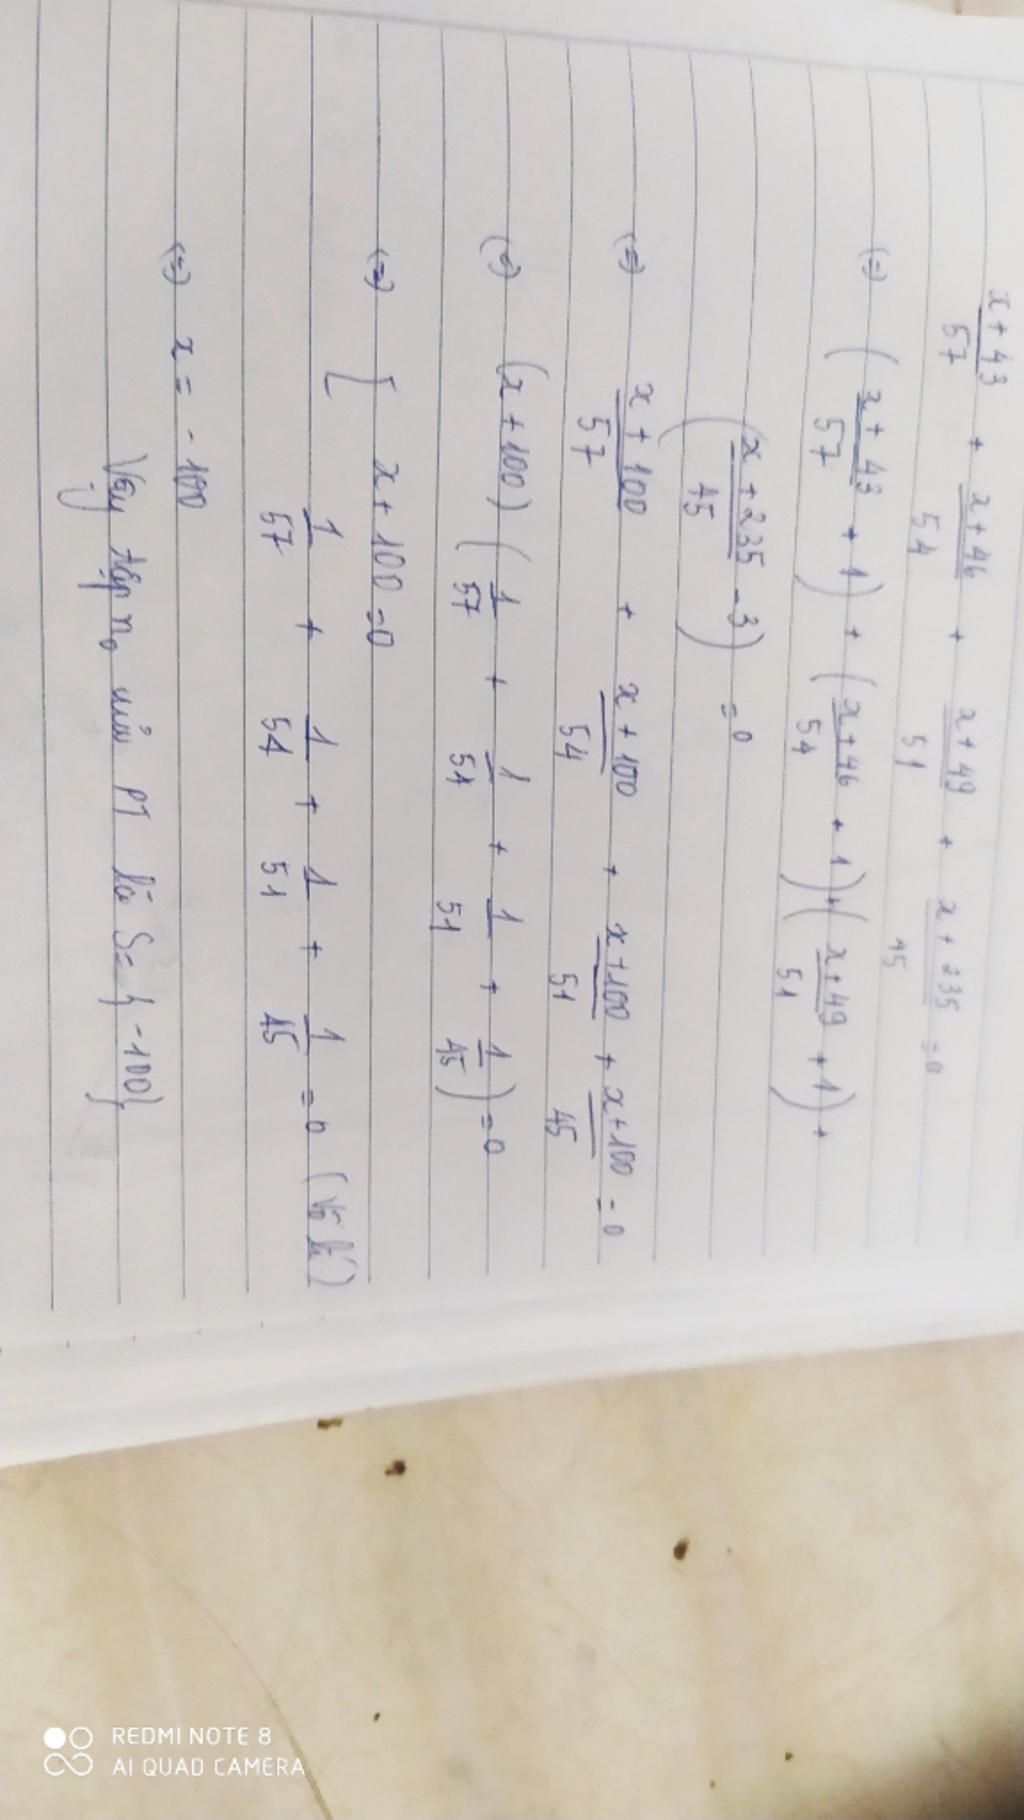 x+43/57 + x+46/54 + x+49/51 + x+235/45 = 0
(=) (x+43/57 + 1) + (x+46/54 + 1) + (x+49/51 + 1) +
(x+235/45 - 3) = 0
(=) x+100/57 + x+100/54 + x+100/51 + x+100/45 = 0
(=) (x+100) (1/57 + 1/54 + 1/51 + 1/45) = 0
(=) [ x+100=0
1/57 + 1/54 + 1/51 + 1/45 = 0 (vô lí)
(=) x = -100
Vậy tập no của PT là S={-100}
REDMI NOTE 8
AI QUAD CAMERA